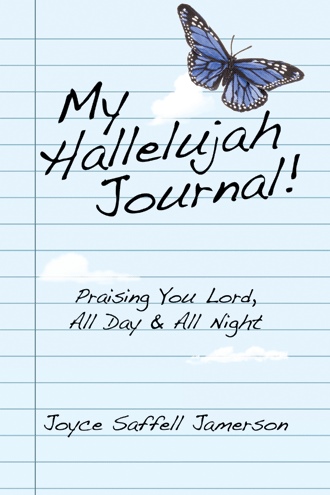 My
Hallelujah
Journal!
Praising You Lord,
All Day & All Night
Joyce Saffell Jamerson